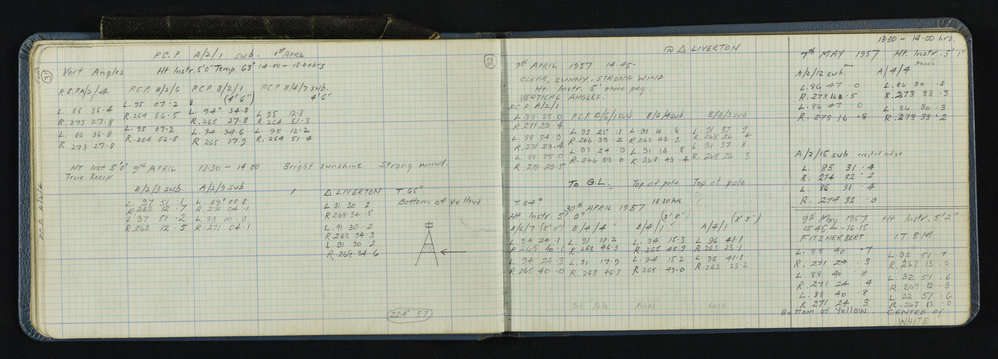 P.C.P. A/2/1 sub. 1st APRIL
Vert Angles Ht Instr. 5'0" Temp. 63° 14.00 - 1500hrs
P.C.P A/2/4 P.C.P. B/2/6 P.C.P. B/2/1 P.C.P B/4/7 sub
(4'6") 4'6"
L. 86 36.4 L. 95 07.2 L. 94° 34.8 L. 95 12.3
R. 273 27.8 R. 264 56.5 R. 265 27.8 R. 264 51.3
L. 86 36.8 L. 95 07.2 L. 94 34.6 L. 95 12.2
R. 273 27.8 R. 264 56.8 R. 265 27.9 R. 264 51.4
Ht Inst 5'0" 9th APRIL 13.30 - 14.00 Bright sunshine Strong wind.
B/2/3 sub. A/2/9 sub △ LIVERTON T 65°
Bottom of Yellow
L 97 51 L. 89° 00.8 L 91 30.2
R. 262 12.7 R. 271 04.1 R 268 34.5
L. 97 51.2 L. 89 00.8 L. 91 30.2
R. 262 12.5 R. 271 04.1 R. 268 34.3
L. 91 30.2
R. 268 34.6
@ △ LIVERTON
9th APRIL 1957 14.45-
CLEAR, SUNNY, STRONG WIND
Ht. Instr. 5" above peg.
VERTICAL ANGLES.
P.C.P. A/2/1 P.C.P. B/6/1 sub B/6/4 sub B/8/3 sub
L 88 35.0 L. 93 25.1 L. 91 14.8 L. 91 37.9
R. 271 29.4 R. 266 33.2
L 88 34.9 L. 93 24.9 L. 91 14.8 L. 91 37.8
R. 271 29.4 R. 266 33.0 R. 268 43.4 R. 268 26.3
L. 88 35.0
R. 271 29.5
To G.L. Top of pole Top of pole
T. 64° 30th APRIL 1957 13.30hr
Ht Instr. 5'0" (3'8") (3'3")
B/6/7 (5'0") B/4/4 B/4/1 A/4/1
L. 94 24.1 L. 91 18.2 L. 94 15.3 L. 96 41.1
R. 265 40.1 R. 268 46.3 R. 265 48.9 R. 263 23.1
L. 94 24.3 L. 91 17.9 L. 94 15.2 L. 96 41.1
R. 265 40.0 R. 268 46.3 R. 265 49.0 R. 263 23.2
13.30 - 14.00 hrs.
7th MAY 1957 Ht Instr. 5'1"
A/2/12 sub. A/4/4
L. 86 47.0 L. 86 30.8
R. 273 16.5 R. 273 33.3
L. 86 47.0 L. 86 30.3
R. 273 16.8 R. 273 33.2
A/2/15 sub
L. 85 31.4
R. 274 32.2
L. 85 31.4
R. 274 32.0
9th May, 1957 Ht Instr. 5'2"
15.45 - 16.15
FITZHERBERT I T B M
L. 88 40.7 L. 92 51.7
R. 271 24.3 R. 267 13.0
L. 88 40.8 L. 92 51.6
R. 271 24.4 R. 267 12.3
L. 88 40.8 L. 92 51.6
R. 271 24.3 R. 267 13.0
Bottom of Yellow CENTRE OF
WHITE